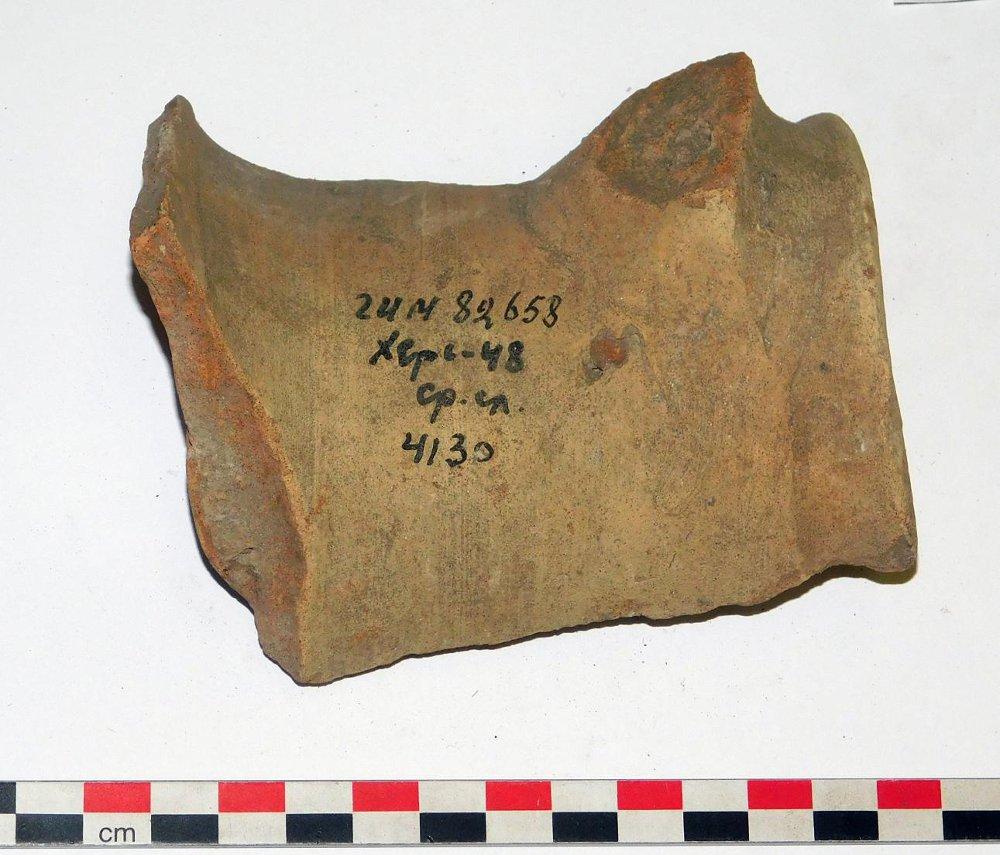 ГИМ 82658
Херс-48
ср. сл.
4130
cm